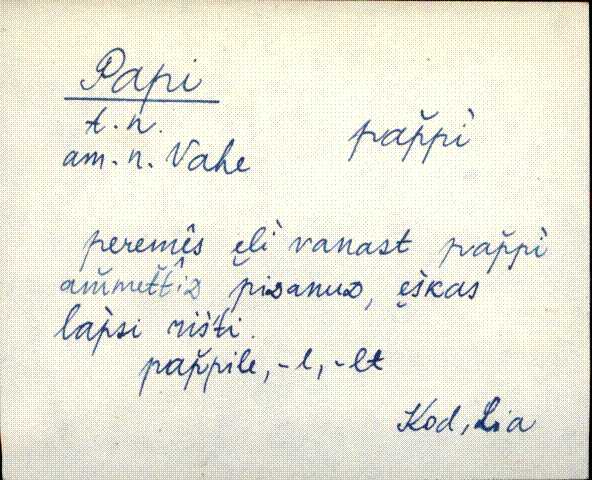 Papi
t. n.
am. n. Vahe
pap̆pì
peremês ęlì vanast pap̆pì
am̆met̆tiᴅ piᴅanuᴅ, ęškas
lap̀si rišti.
pap̆pile, -l, -lt
Kod, Lia